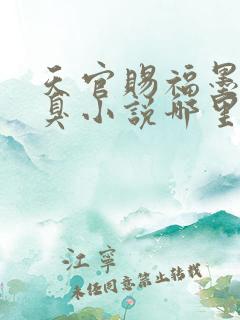 天官賜福墨
真小说哪里
江寧
未经同意禁止转载